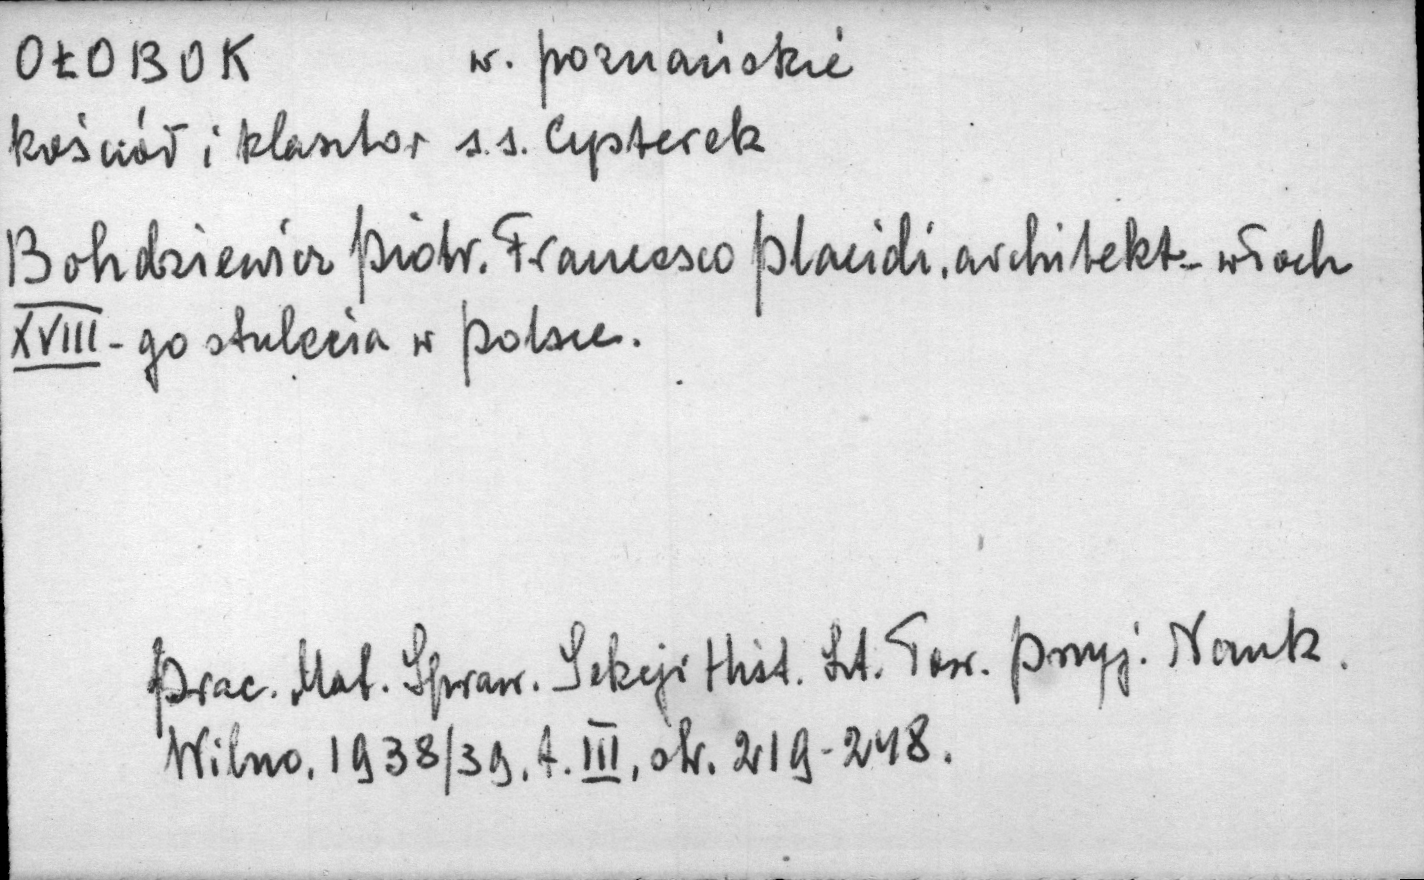 OŁOBOK w. poznańskie
kościół i klasztor s.s. Cysterek
Bohdziewicz Piotr. Francesco Placidi, architekt-włoch
XVIII-go stulecia w Polsce.
Prac. Mat. Spraw. Sekcji Hist. Szt. Tow. Przyj. Nauk.
Wilno, 1938/39, t. III, str. 219-248.